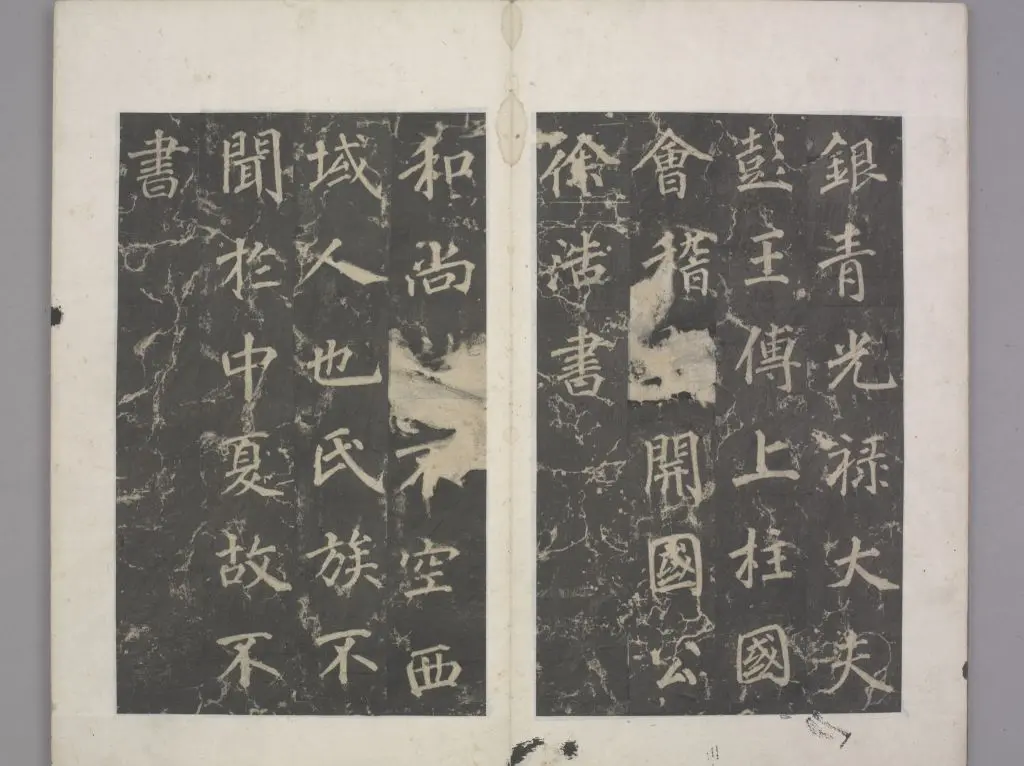 銀青光禄大夫
彭王傅上柱國
會稽開國公
徐浩書
和尚不空西
域人也氏族不
聞於中夏故不
書